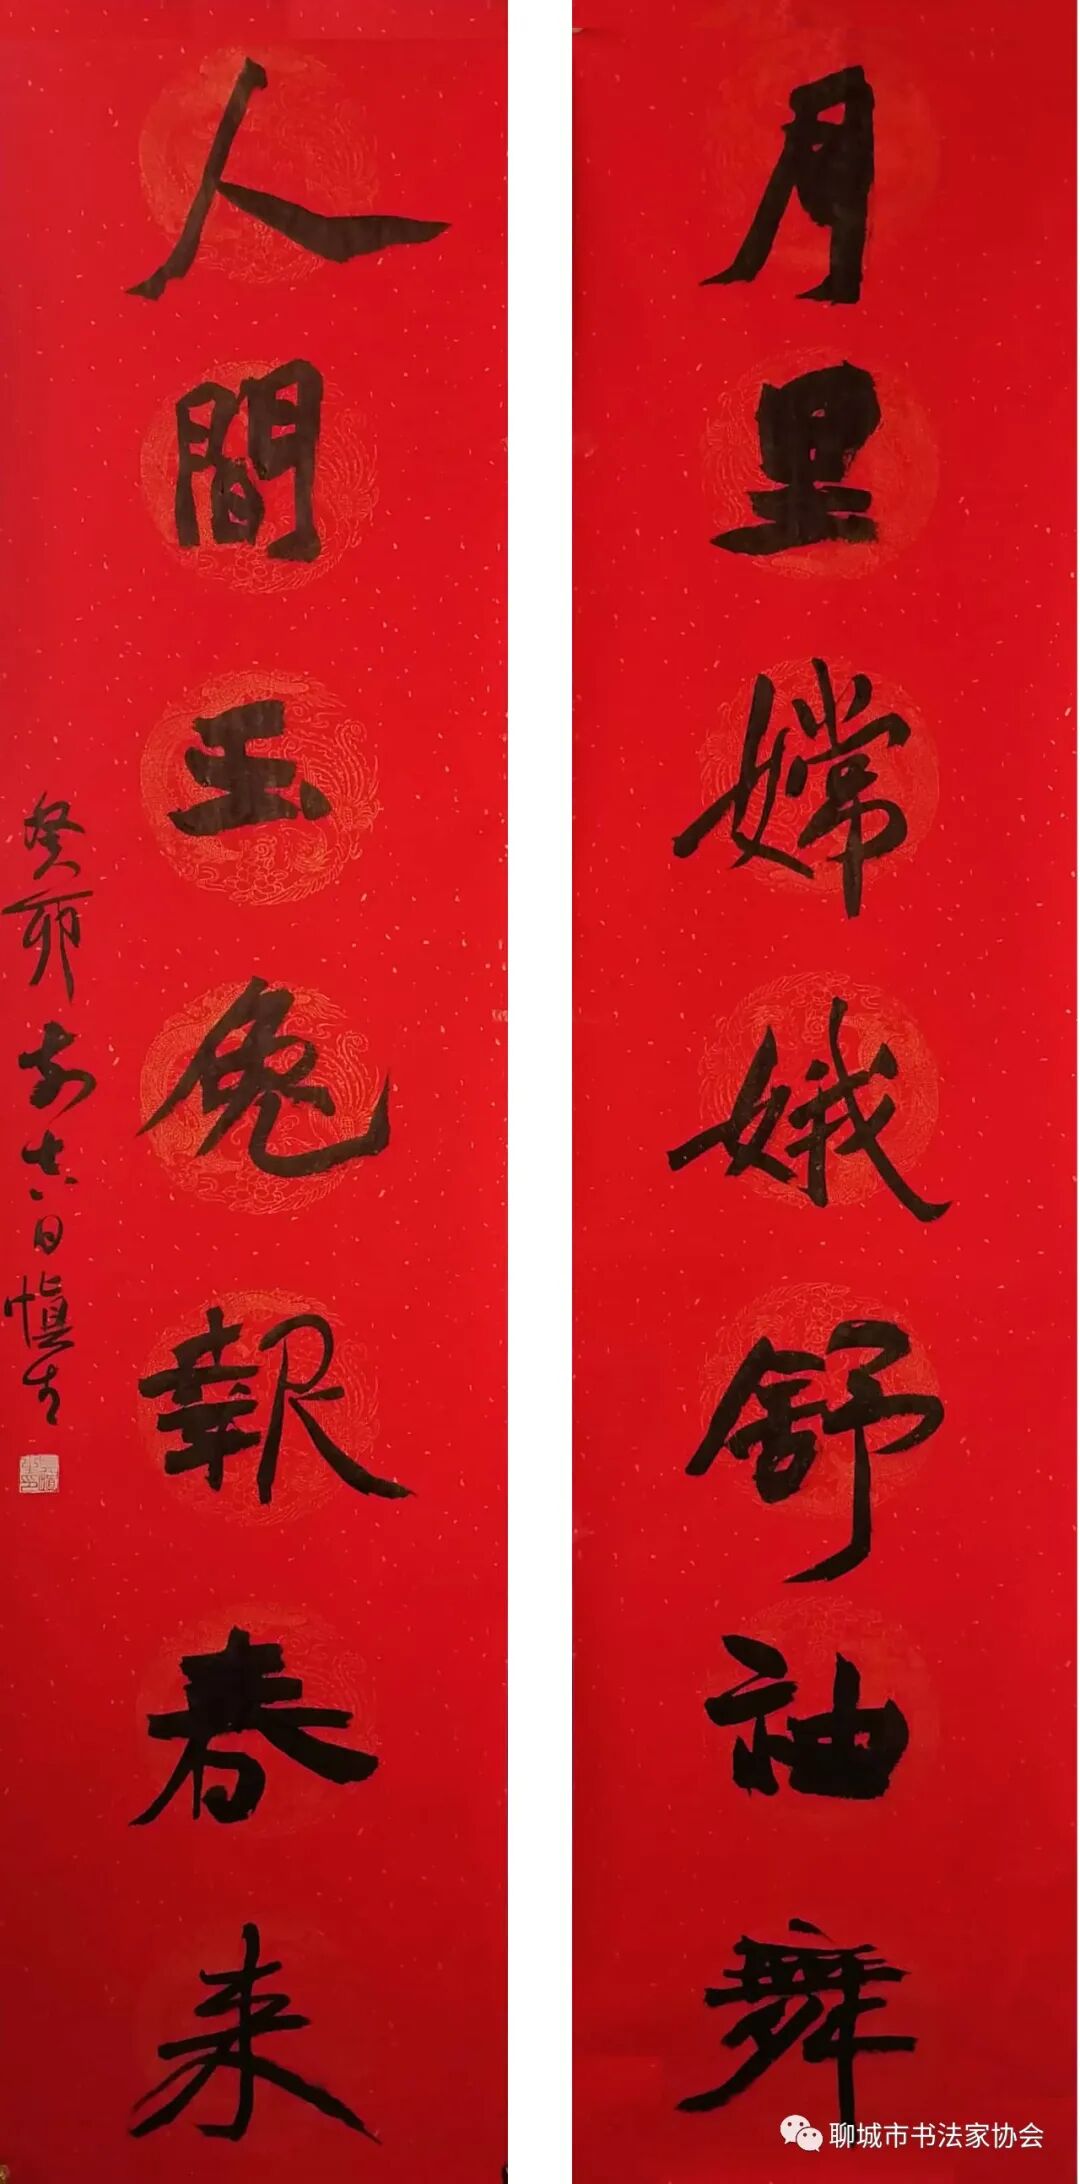 月里嫦娥舒袖舞
人間玉兔報春来
癸卯前六日慎生
聊城市书法家协会